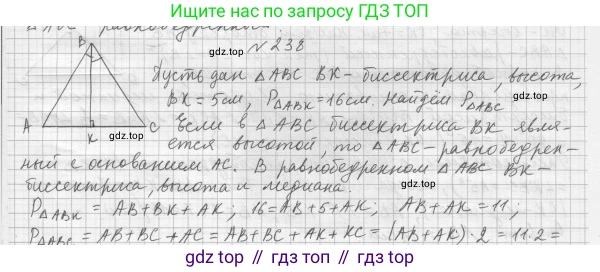 Ищите нас по запросу ГДЗ ТОП
gdz.top
№ 238
B
Пусть дан △ABC BK - биссектриса, высота,
BK = 5см, P△ABK = 16см. Найдём P△ABC
gdz.top
A K C
Если в △ABC биссектриса BK явля-
gdz.top
ется высотой, то △ABC - равнобедрен-
ный с основанием AC. В равнобедренном △ABC BK-
биссектриса, высота и медиана.
gdz.top
P△ABK = AB+BK+AK; 16=AB+5+AK; AB+AK=11;
P△ABC = AB+BC+AC = AB+BC+AK+KC = (AB+AK)·2 = 11·2=
gdz.top // gdz.top // gdz.top